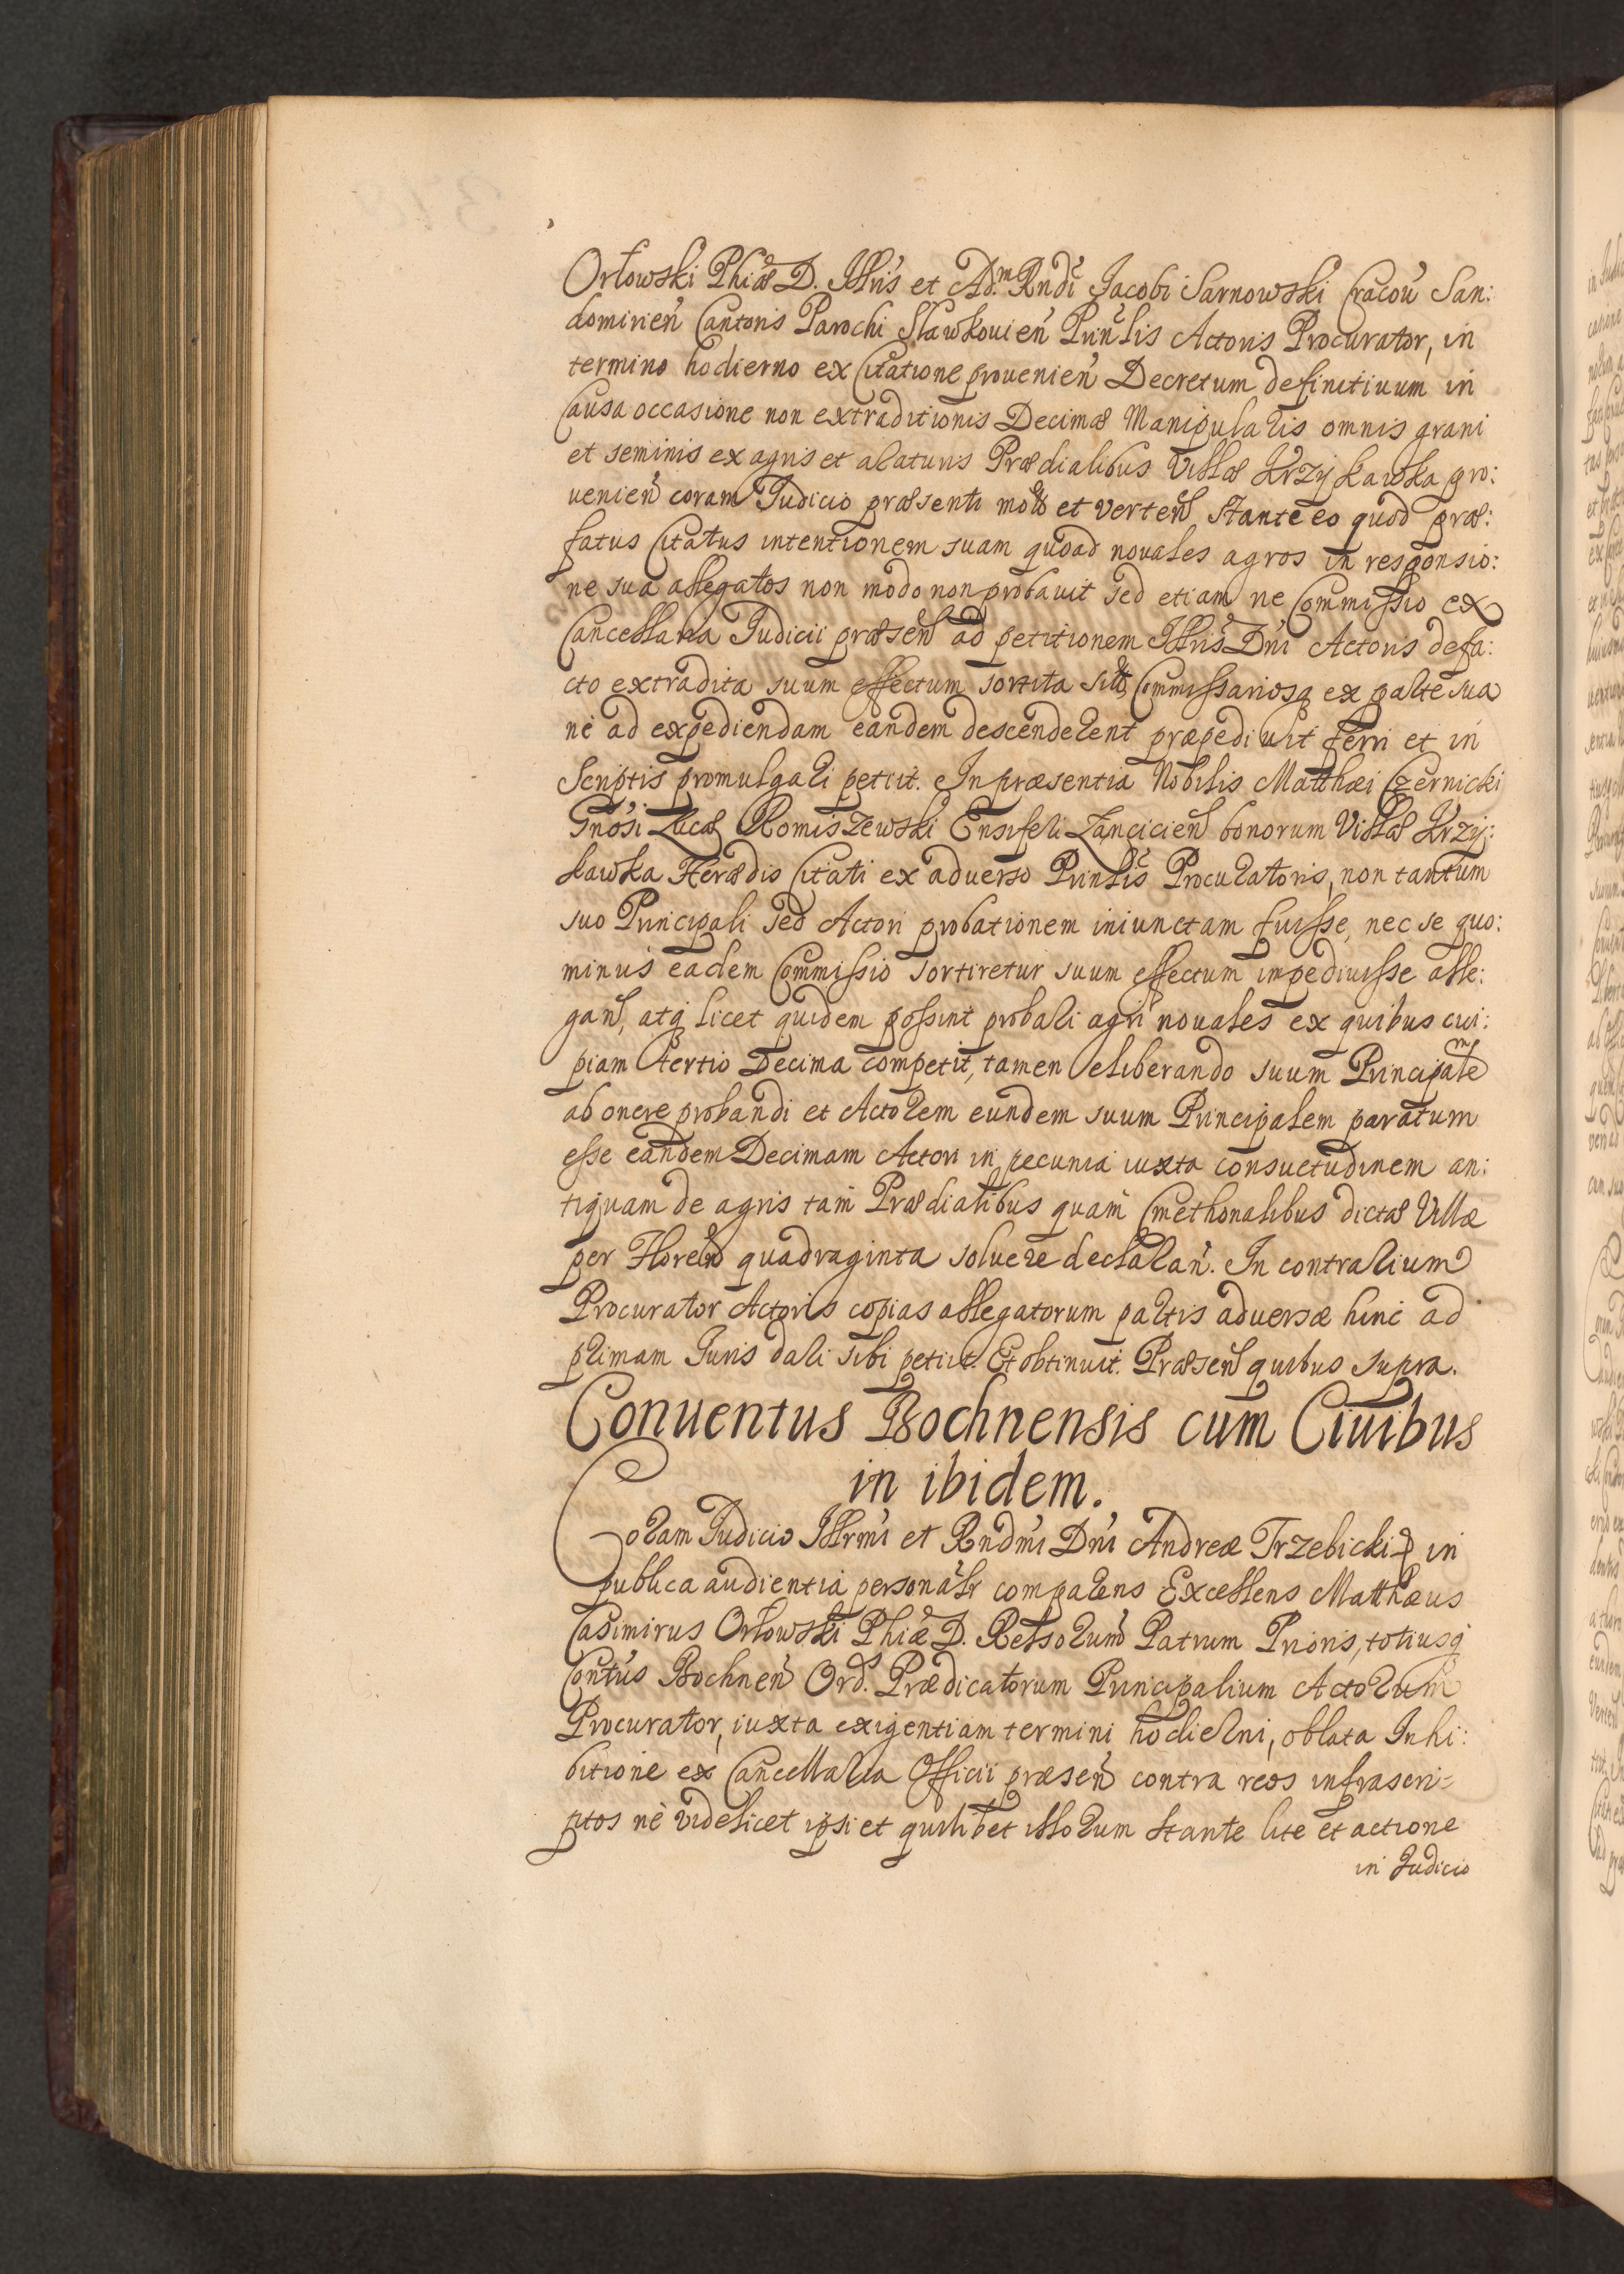 Orłowski Phiæ D. Illris et Ad.m Rndi Jacobi Sarnowski Cracou San:
domirien Cantoris Parochi Slawkouien Prinlis Actoris Procurator, in
termino hodierno ex Citatione prouenien Decretum definitiuum in
Causa occasione non extraditionis Decimæ Manipularis omnis grani
et seminis ex agris et araturis Prædialibus Villæ Krzykawka pro:
uenien coram Judicio præsenti mot et verten stante eo quod præ:
fatus Citatus intentionem suam quoad nouales agros in responsio:
ne sua allegatos non modo non probauit sed etiam ne Commissio ex
Cancellaria Judicii præsen ad petitionem Illris Dni Actoris defa:
cto extradita suum effectum sortita sit Commissariosq ex parte sua
ne ad expediendam eandem descenderent præpediuit ferri et in
scriptis promulgari petiit. In præsentia Nobilis Matthæi Czernicki
Gnosi Lucæ Romiszewski Ensiferi Lancicien bonorum Villæ Krzy:
kawka Hæredis Citati ex aduerso Prinlis Procuratoris, non tantum
suo Principali sed Actori probationem iniunctam fuisse, nec se quo:
minus eadem Commissio sortiretur suum effectum impediuisse alle:
gan, atq licet quidem possint probari agri nouales ex quibus cui:
piam tertio Decima competit, tamen eliberando suum Principalem
ab onere probandi et Actorem eundem suum Principalem paratum
esse eandem Decimam Actori in pecunia iuxta consuetudinem an:
tiquam de agris tam Prædialibus quam Cmethonalibus dictæ Villæ
per Floren quadraginta soluere declaran. In contrarium
Procurator Actoris copias allegatorum partis aduersæ hinc ad
primam Juris dari sibi petiit. Et obtinuit. Præsen quibus supra.
Conuentus Bochnensis cum Ciuibus
in ibidem.
Coram Judicio Illrmi et Rndmi Dni Andreæ Trzebicki in
publica audientia personalr comparens Excellens Matthæus
Casimirus Orłowski Phiæ D. Relsorum Patrum Prioris, totiusq
Contus Bochnen Ord. Prædicatorum Principalium Actorum
Procurator, iuxta exigentiam termini hodierni, oblata Inhi:
bitione ex Cancellaria Officii præsen contra reos infrascri=
ptos ne videlicet ipsi et quilibet illorum stante lite et actione
in Judicio